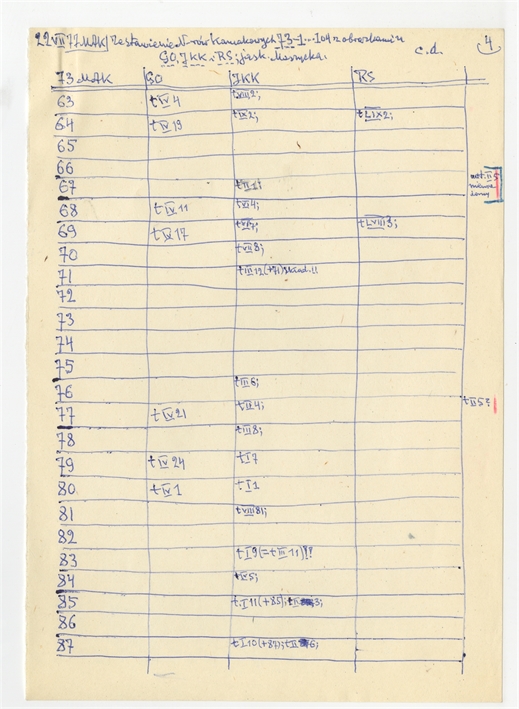 22 VII 77 MAK Zestawienie N-rów 73-1...104 z obrazkami
GO, JKK i RS; jask. Maszycka. c.d. 4
73 MAK GO JKK RS
63 t IV 4 t VIII 2;
64 t IV 19 t IX 2; t LIX 2;
65
66
67 t II 1;
68 t IV 11 t VI 4;
69 t IV 17 t VII; t LVIII 3;
70 t VII 8;
71 t III 12 (+71) skąd!!
72
73
74
75
76 t III 6;
77 t IV 21 t II 4; t II 5?
78 t III 8;
79 t IV 24 t I 7
80 t IV 1 t I 1
81 t VIII 81;
82
83 t I 9 (= t III 11)!?
84 t IX 5;
85 t I 11 (+85); t II 3;
86
87 t I 10 (+87); t II 6;